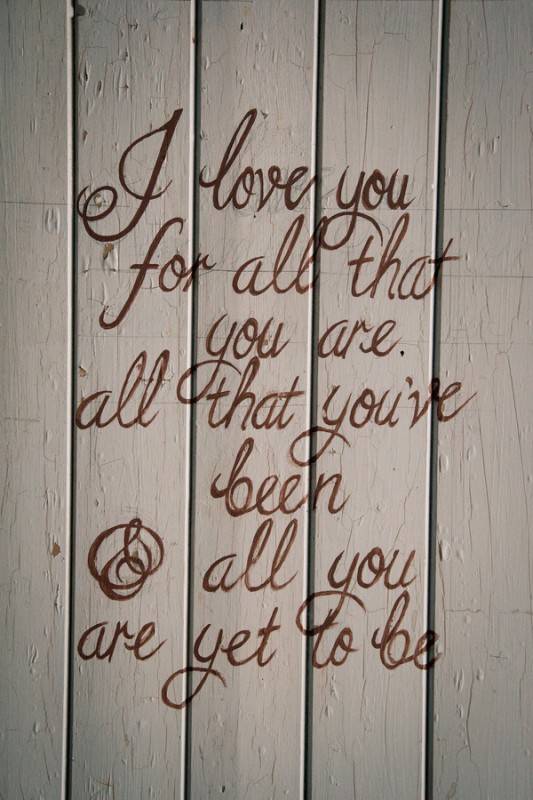 I love you
for all that
you are.
all that you've
been
& all you
are yet to be